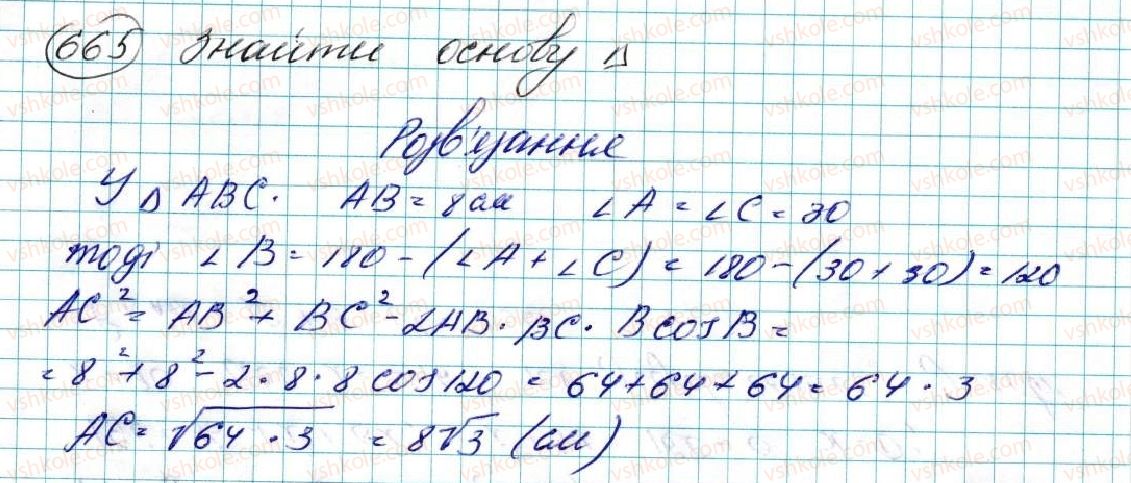 665 Знайти основу Δ
Розв'язання
У Δ ABC. AB = 8 см ∠A = ∠C = 30
тоді ∠B = 180 - (∠A + ∠C) = 180 - (30 + 30) = 120
AC² = AB² + BC² - 2AB · BC · B cos B =
= 8² + 8² - 2 · 8 · 8 cos 120 = 64 + 64 + 64 = 64 · 3
AC = √64 · 3 = 8√3 (см)